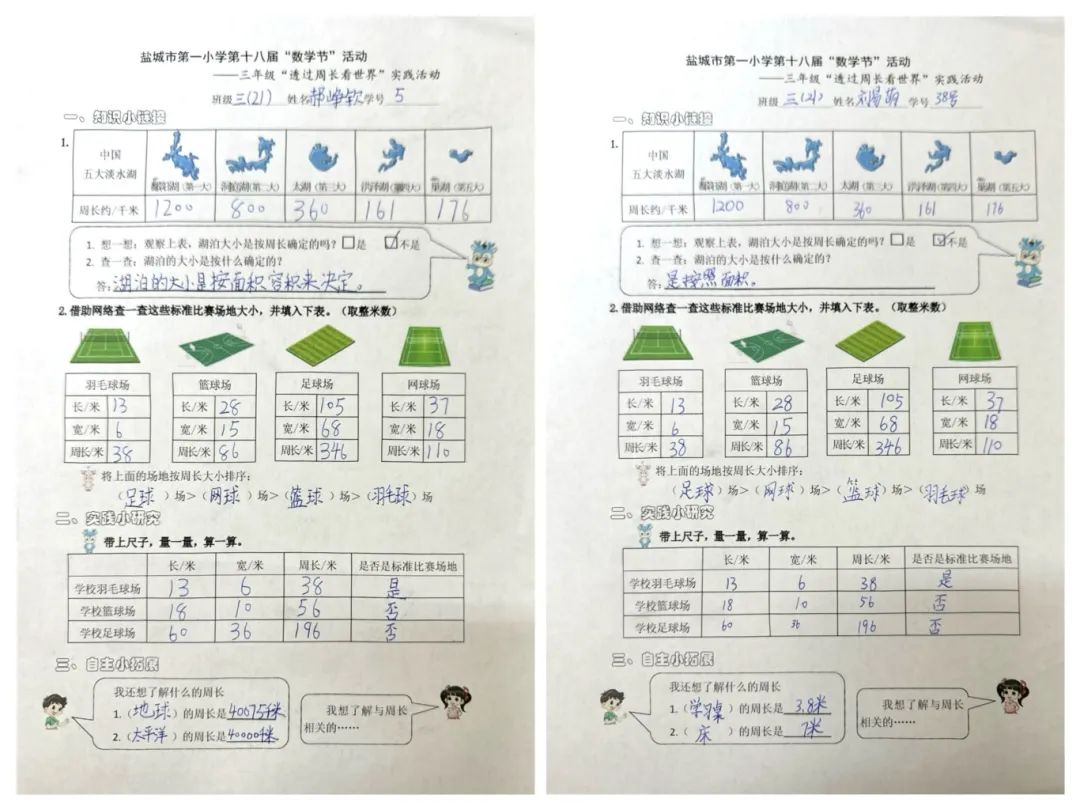 盐城市第一小学第十八届“数学节”活动
——三年级“透过周长看世界”实践活动
班级 三(21) 姓名 郝峥钦 学号 5
一、知识小链接
1.
中国 五大淡水湖 鄱阳湖(第一大) 洞庭湖(第二大) 太湖(第三大) 洪泽湖(第四大) 巢湖(第五大)
周长约/千米 1200 800 360 161 176
1. 想一想:观察上表,湖泊大小是按周长确定的吗?□是 ☑不是
2. 查一查:湖泊的大小是按什么确定的?
答:湖泊的大小是按面积容积来决定。
2.借助网络查一查这些标准比赛场地大小,并填入下表。(取整米数)
羽毛球场 篮球场 足球场 网球场
长/米 13 长/米 28 长/米 105 长/米 37
宽/米 6 宽/米 15 宽/米 68 宽/米 18
周长/米 38 周长/米 86 周长/米 346 周长/米 110
将上面的场地按周长大小排序:
(足球)场>(网球)场>(篮球)场>(羽毛球)场
二、实践小研究
带上尺子,量一量,算一算。
长/米 宽/米 周长/米 是否是标准比赛场地
学校羽毛球场 13 6 38 是
学校篮球场 18 10 56 否
学校足球场 60 36 196 否
三、自主小拓展
我还想了解什么的周长
1.(地球)的周长是40075千米
2.(太平洋)的周长是40000千米
我想了解与周长
相关的……
盐城市第一小学第十八届“数学节”活动
——三年级“透过周长看世界”实践活动
班级 三(21) 姓名 刘易萌 学号 38号
一、知识小链接
1.
中国 五大淡水湖 鄱阳湖(第一大) 洞庭湖(第二大) 太湖(第三大) 洪泽湖(第四大) 巢湖(第五大)
周长约/千米 1200 800 360 161 176
1. 想一想:观察上表,湖泊大小是按周长确定的吗?□是 ☑不是
2. 查一查:湖泊的大小是按什么确定的?
答:是按照面积。
2.借助网络查一查这些标准比赛场地大小,并填入下表。(取整米数)
羽毛球场 篮球场 足球场 网球场
长/米 13 长/米 28 长/米 105 长/米 37
宽/米 6 宽/米 15 宽/米 68 宽/米 18
周长/米 38 周长/米 86 周长/米 346 周长/米 110
将上面的场地按周长大小排序:
(足球)场>(网球)场>(篮球)场>(羽毛球)场
二、实践小研究
带上尺子,量一量,算一算。
长/米 宽/米 周长/米 是否是标准比赛场地
学校羽毛球场 13 6 38 是
学校篮球场 18 10 56 否
学校足球场 60 36 196 否
三、自主小拓展
我还想了解什么的周长
1.(学习桌)的周长是 3.8米
2.(床)的周长是 7米
我想了解与周长
相关的……